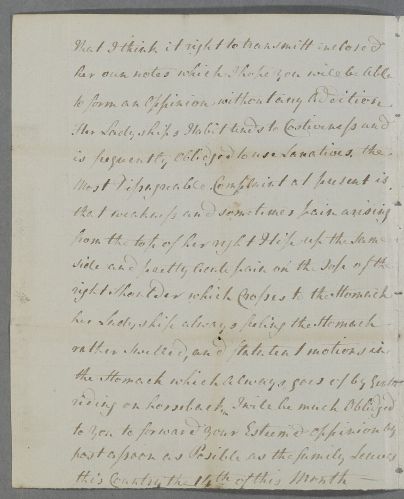 that I think it right to transmitt inclosed
her own notes which I hope you will be Able
to form an Oppinion without any Addition.
Her Ladyships Habit tends to Costiveness and
is frequently Obliedged to use Laxatives, the
Most Disagreable Complaint at present is
that weakness and sometimes pain arising
from the top of her right Hip up the same
side and pretty Acute pain on the Top of the
right Shoulder which Crosses to the Stomach
her Ladyship always feeling the Stomach
rather Swelled, and flatulent motions in
the Stomach which Always goes of by
riding on horseback, I will be much Obliedged
to You to forward Your Esteem'd oppinion by
post as soon as Posible as the family Leaves
this Country the 14th of this Month